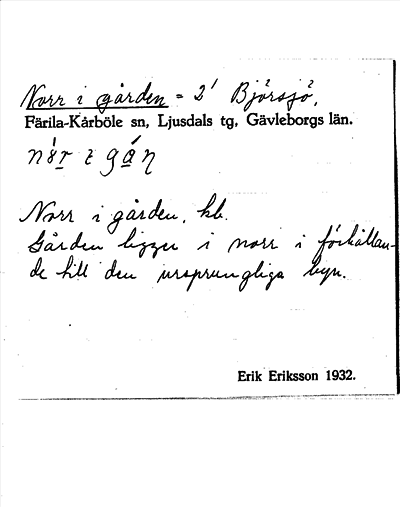 Norr i gården = 2' Björsjö,
Färila-Kårböle sn, Ljusdals tg, Gävleborgs län.
Norr i gården, hb.
Gården ligger i norr i förhållan-
de till den ursprungliga byn.
Erik Eriksson 1932.